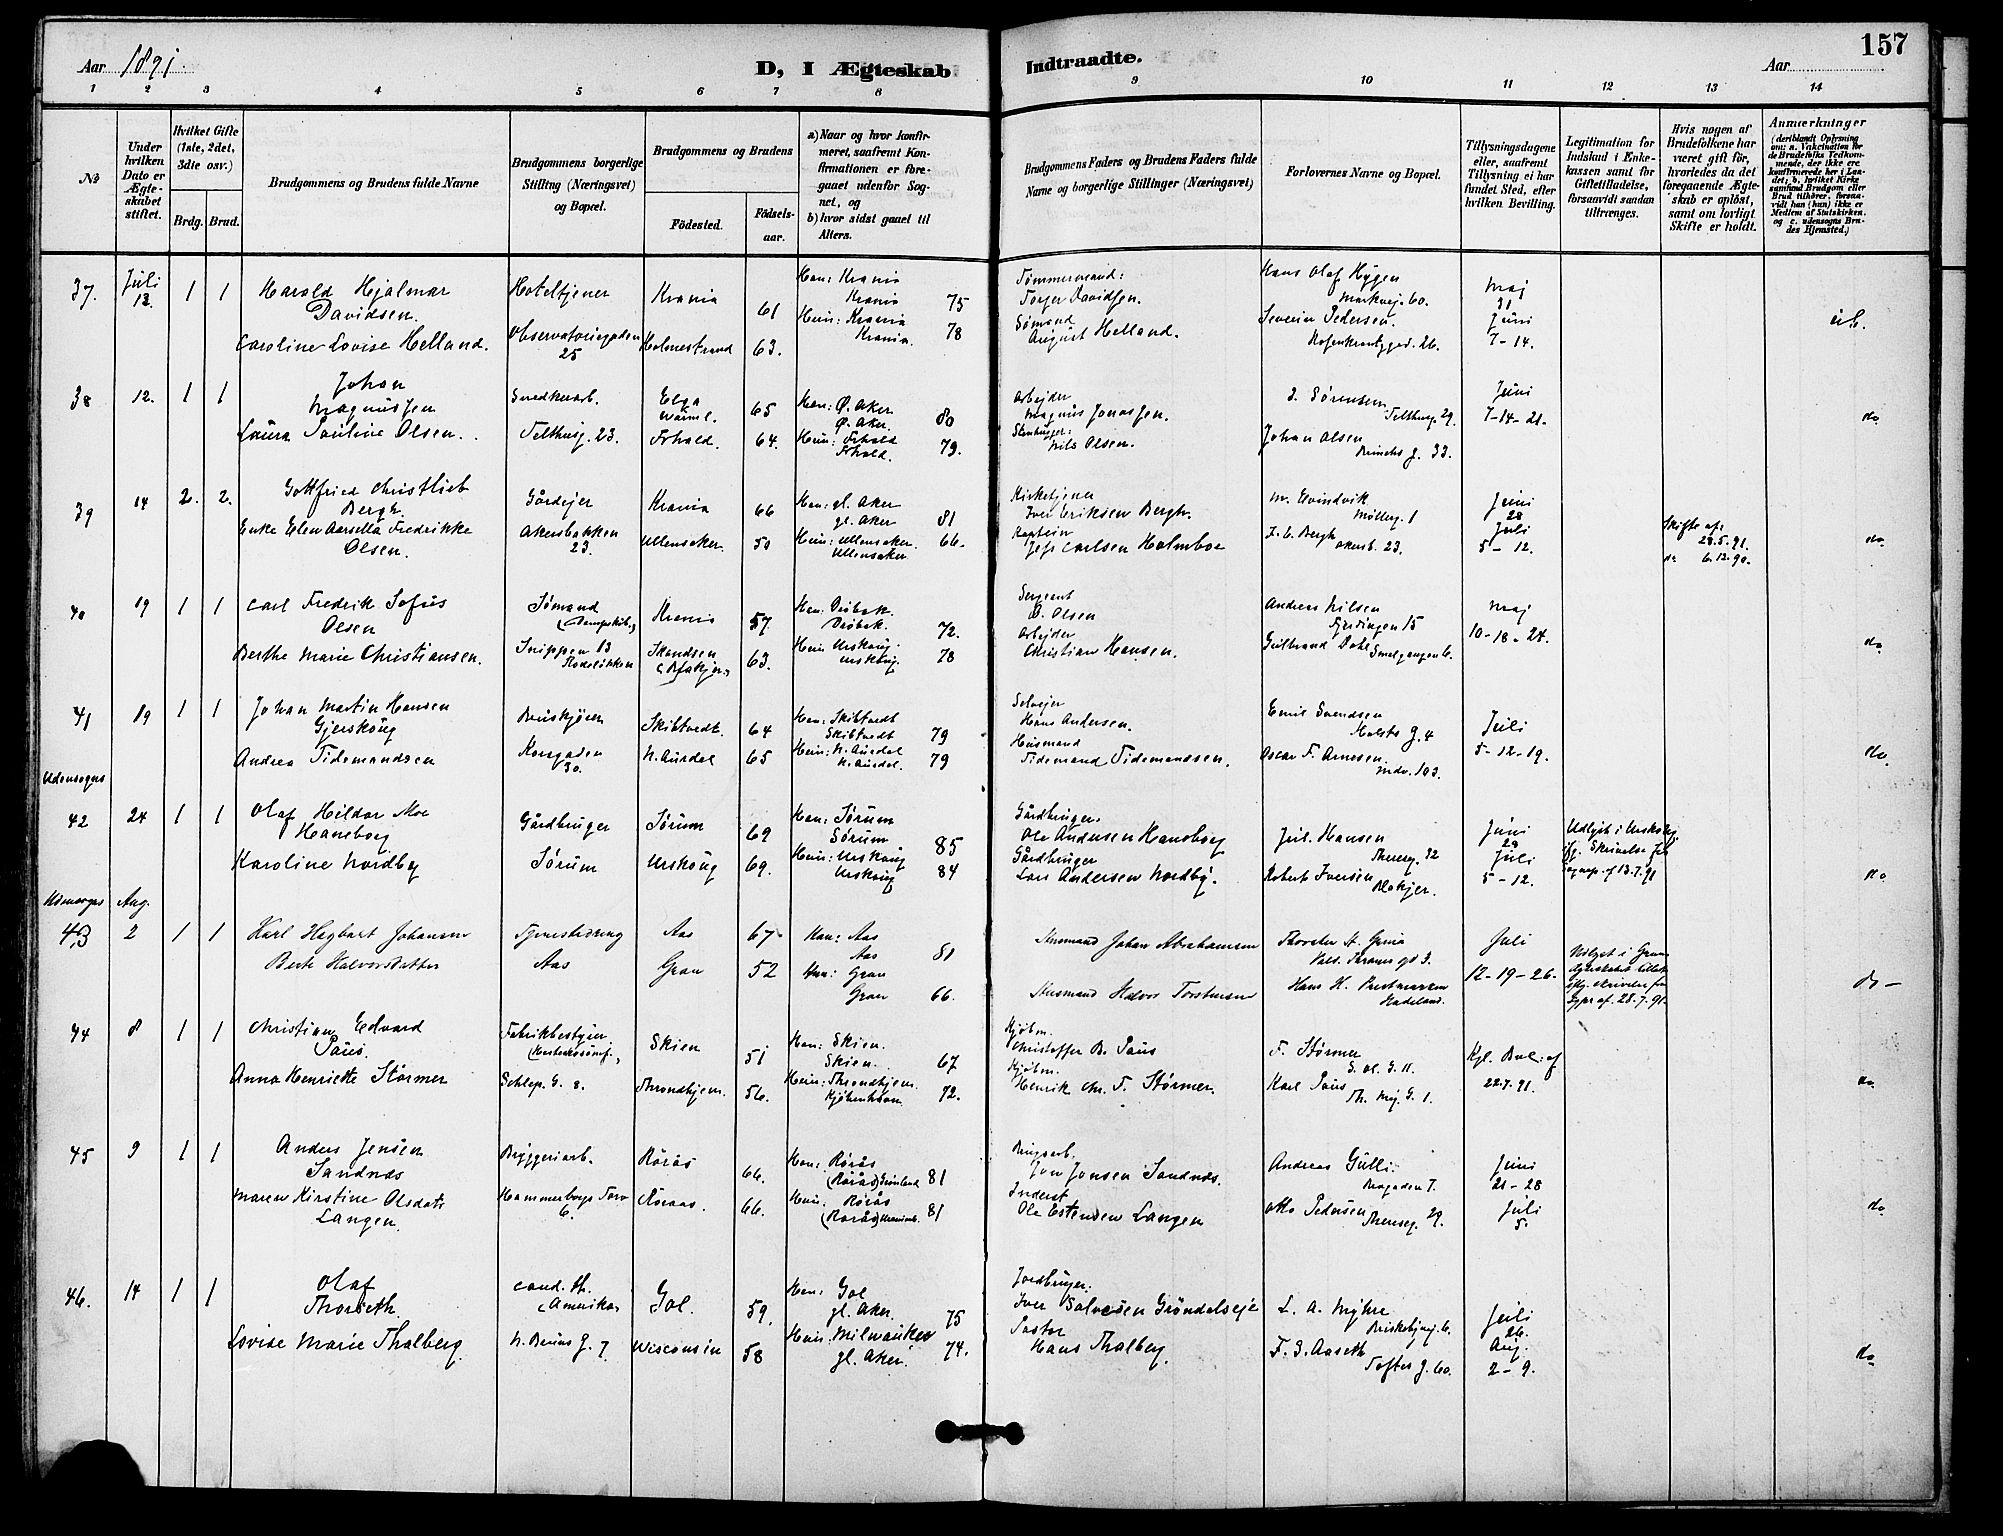 157
Aar 1891.
D, I Ægteskab Indtraadte.
Aar
1 2 3 4 5 6 7 8 9 10 11 12 13 14
No
Under hvilken Dato er Ægteskabet stiftet.
Hvilket Gifte (1ste, 2det, 3die osv.)
Brdg. Brud.
Brudgommens og Brudens fulde Navne
Brudgommens borgerlige Stilling (Næringsvei) og Bopæl.
Brudgommens og Brudens
Födested.
Födselsaar.
a) Naar og hvor konfirmeret, saafremt Konfirmationen er foregaaet udenfor Sognet, og
b) hvor sidst gaaet til Alters.
Brudgommens Faders og Brudens Faders fulde Navne og borgerlige Stillinger (Næringsvei)
Forlovernes Navne og Bopæl.
Tillysningsdagene eller, saafremt Tillysning ei har fundet Sted, efter hvilken Bevilling.
Legitimation for Indskud i Enkekassen samt for Giftetilladelse, forsaavidt saadan tiltrænges.
Hvis nogen af Brudefolkene har været gift för, hvorledes da det foregaaende Ægteskab er oplöst, samt om lovligt Skifte er holdt.
Anmærkninger
(deriblandt Oplysning om: a. Vakcination for de Brudefolks Vedkommende, der ikke ere konfirmerede her i Landet; b. hvilket Kirkesamfund Brudgom eller Brud tilhörer, forsaavidt han (hun) ikke er Medlem af Statskirken, og c. udensogns Brudes Hjemsted.)
37. Juli 12. 1 1 Harald Hjalmar Hoteltjener Krania 61 Han: Krania Krania 75 Tømmermand: Torger Davidsen. Hans Olaf Hygen Markvej. 60. Maj 31
Davidsen.
Caroline Lovise Helland. Observatoriegaden 25 Holmestrand 63. Hun: Krania Krania. 78 Sømand August Helland. Severin Pedersen. Rosenkrantzgad. 26. Juni 7-14.
38 12. 1 1 Johan Magnussen Snedkerarb. 65 Han: Ø. Aker Ø. Aker. 80 Arbejder Magnus Jonassen. J. Sørensen Telthusg. 29. Juni 7-14-21. do
Laura Pauline Olsen. Telthusg. 23. Frhald. 64. Hun: Frhald Frhald. 79. Nils Olsen. Johan Olsen 33.
39 14 2. 2. Gottfried Christlieb Bergh. Gårdejer Krania 66 Han: gl. Aker gl. Aker 81 Kirketjener Iver Eriksen Bergh. M. Evindvik Møllerg. 1 Juni 28
Enke Elen Fredrikke Olsen. Akersbakken 23. Ullensaker. 50 Hun: Ullensaker. Ullensaker 66. Kaptein Carlsen Holmboe Bergh Akersb. 23. Juli 5-12. Skifte af: 23.5.91. do 6.12.90. do.
40 19 1 1 Carl Fredrik Sofus Olsen Sømand Krania 57. Han: Drøbak. Drøbak. 72. Sergeant O. Olsen Andreas Nilsen Fjerdingen 15 Maj 10-18-24.
Berthe Marie Christiansen. Snippen 13 Rodeløkken 63. Hun Urskoug. Urskoug. 78 Arbejder Christian Hansen. Gulbrand Dahl Smalgangen 6. do
41 19 1 1 Johan Martin Hansen Gjerskoug Skibtvedt. 64 Han: Skibtvedt Skibtvedt 79 Selvejer Hans Andersen. Emil Svendsen Holsts g. 4 Juli 5-12-19.
Andrea Tidemandsen Korsgaden 30. N. Aurdal 65 Hun: N. Aurdal N. Aurdal. 79 Husmand Tidemand Tidemandsen. Oscar F. Arnesen. 103. do
Udensogns
42 24 1 1 Olaf Hildor Moe Hansborg Gårdbruger Sørum 69 Han: Sørum Sørum 85 Gårdbruger. Ole Andersen Hansborg Jul. Hansen 32 Juni 28 Udlyst i Urskoug
Karoline Nordby Sørum Urskoug 69. Hun: Urskoug Urskoug 84 Gårdbruger Lars Andersen Nordby. Robert Iversen Juli 5-12. Skrivelse af 13.7.91 do
Udensogns Aug.
43 2 1 1 Karl Hagbart Johansen Aas 67 Han: Aas Aas 81 Husmand Johan Abrahamsen Thorsten Juli 12-19-26. Udlyst i Gran
Berte Halvorsdatter Aas Gran 52 Hun: Gran Gran 66. Husmand Halvor Torstensen Hans K. Hadeland. skrivelse fra af. 28.7.91. do
44 8 1 1 Christian Edvard Paus. Fabrikbestyrer Skien 51 Han: Skien. Skien. 67 Kjøbm. Christoffer B. Paus F. Størmer Kgl. Bvl: af
Anna Henriette Størmer Schlep. G. 8. Throndhjem. 56. Hun: Throndhjem. Kjøbenhavn. 72. Kjøbm. Henrik Chr. F. Størmer. Karl Paus Th. Mej. G. 1. 22.7.91. do.
45 9 1 1 Anders Jensen Sandnæs Bryggeriarb. Røraas 66. Han: Røraas 81 Jon Jonsen Sandnæs. Andreas Gulli. 7. Juni 21-28
Maren Kirstine Olsdatr Langen. Hammerborgs Torv 6. Røraas 66. Hun. Røraas 81 Inderst Ole Estensen Langen Otto Pedersen 29. Juli 5. do.
46. 14 1 1 Olaf Thorseth cand. th. (Amerika) Gol. 59. Han: Gol gl. Aker. 75 Jordbruger. Iver Grøndalseje L. A. Myhre Briskebyvej. 6. Juli 26.
Lovise Marie Thalberg. 7 Wisconsin 58 Hun: Milwaukee gl. Aker. 74. Pastor Hans Thalberg. F. G. Aaseth Toftes g. 60. Aug. 2-9. do.